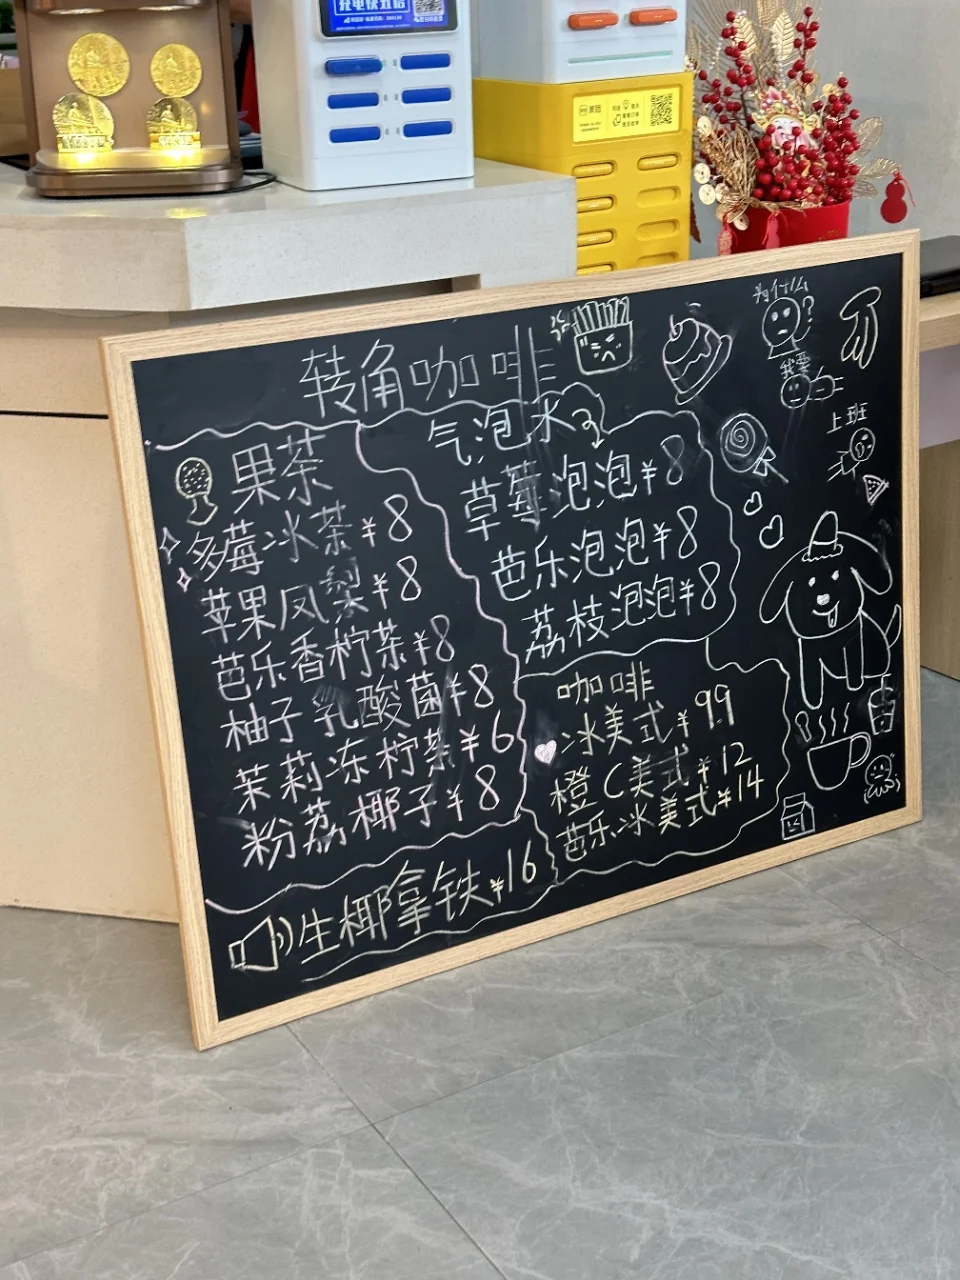 充电快五倍
美团
转角咖啡
为什么
我要
上班
果茶
多莓冰茶¥8
苹果凤梨¥8
芭乐香柠茶¥8
柚子乳酸菌¥8
茉莉冻柠茶¥6
粉荔椰子¥8
气泡水
草莓泡泡¥8
芭乐泡泡¥8
荔枝泡泡¥8
咖啡
冰美式¥9.9
橙C美式¥12
芭乐冰美式¥14
生椰拿铁¥16